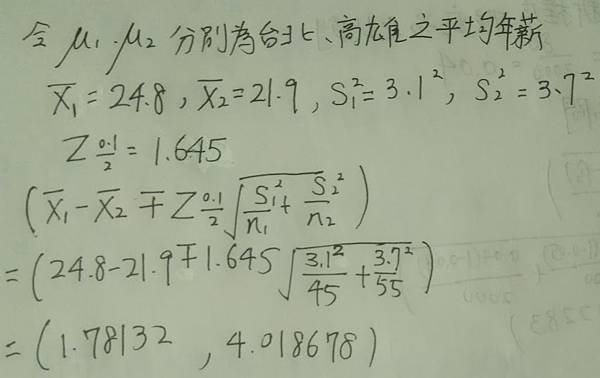 令 μ₁、μ₂ 分別為台北、高雄之平均年薪
X̄₁ = 24.8 , X̄₂ = 21.9 , S₁² = 3.1² , S₂² = 3.7²
Z_{0.1/2} = 1.645
( X̄₁ - X̄₂ ∓ Z_{0.1/2} √(S₁²/n₁ + S₂²/n₂) )
= ( 24.8 - 21.9 ∓ 1.645 √(3.1²/45 + 3.7²/55) )
= ( 1.78132 , 4.018678 )